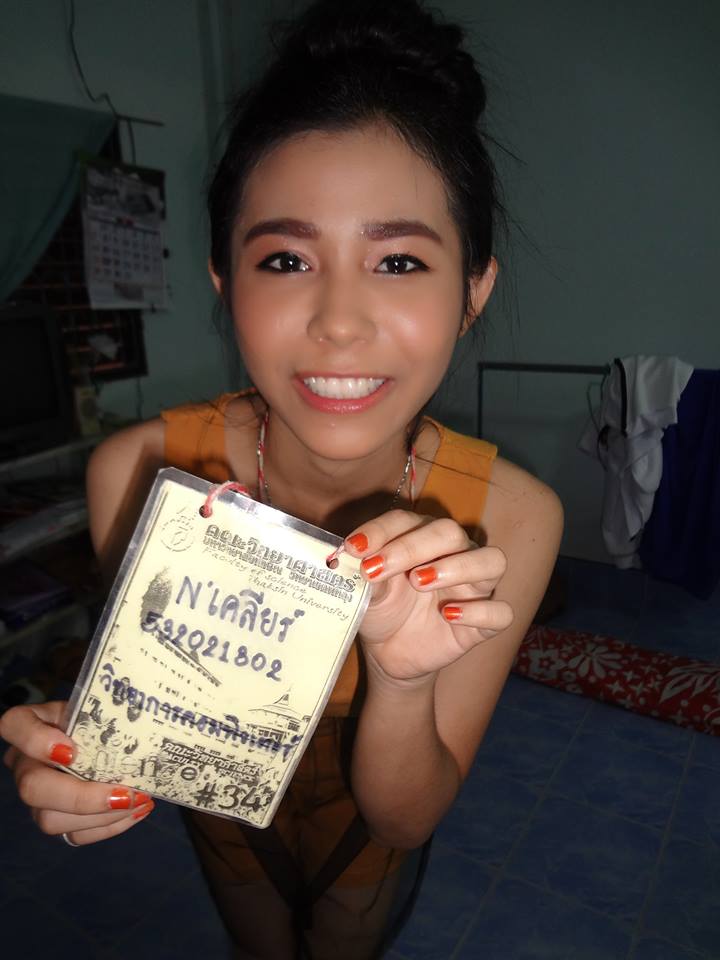 คณะวิทยาศาสตร์
มหาวิทยาลัยทักษิณ วิทยาเขตพัทลุง
Faculty of science
Thaksin University
N'เคลียร์
532021802
วิทยาการคอมพิวเตอร์
คณะวิทยาศาสตร์
science
#34